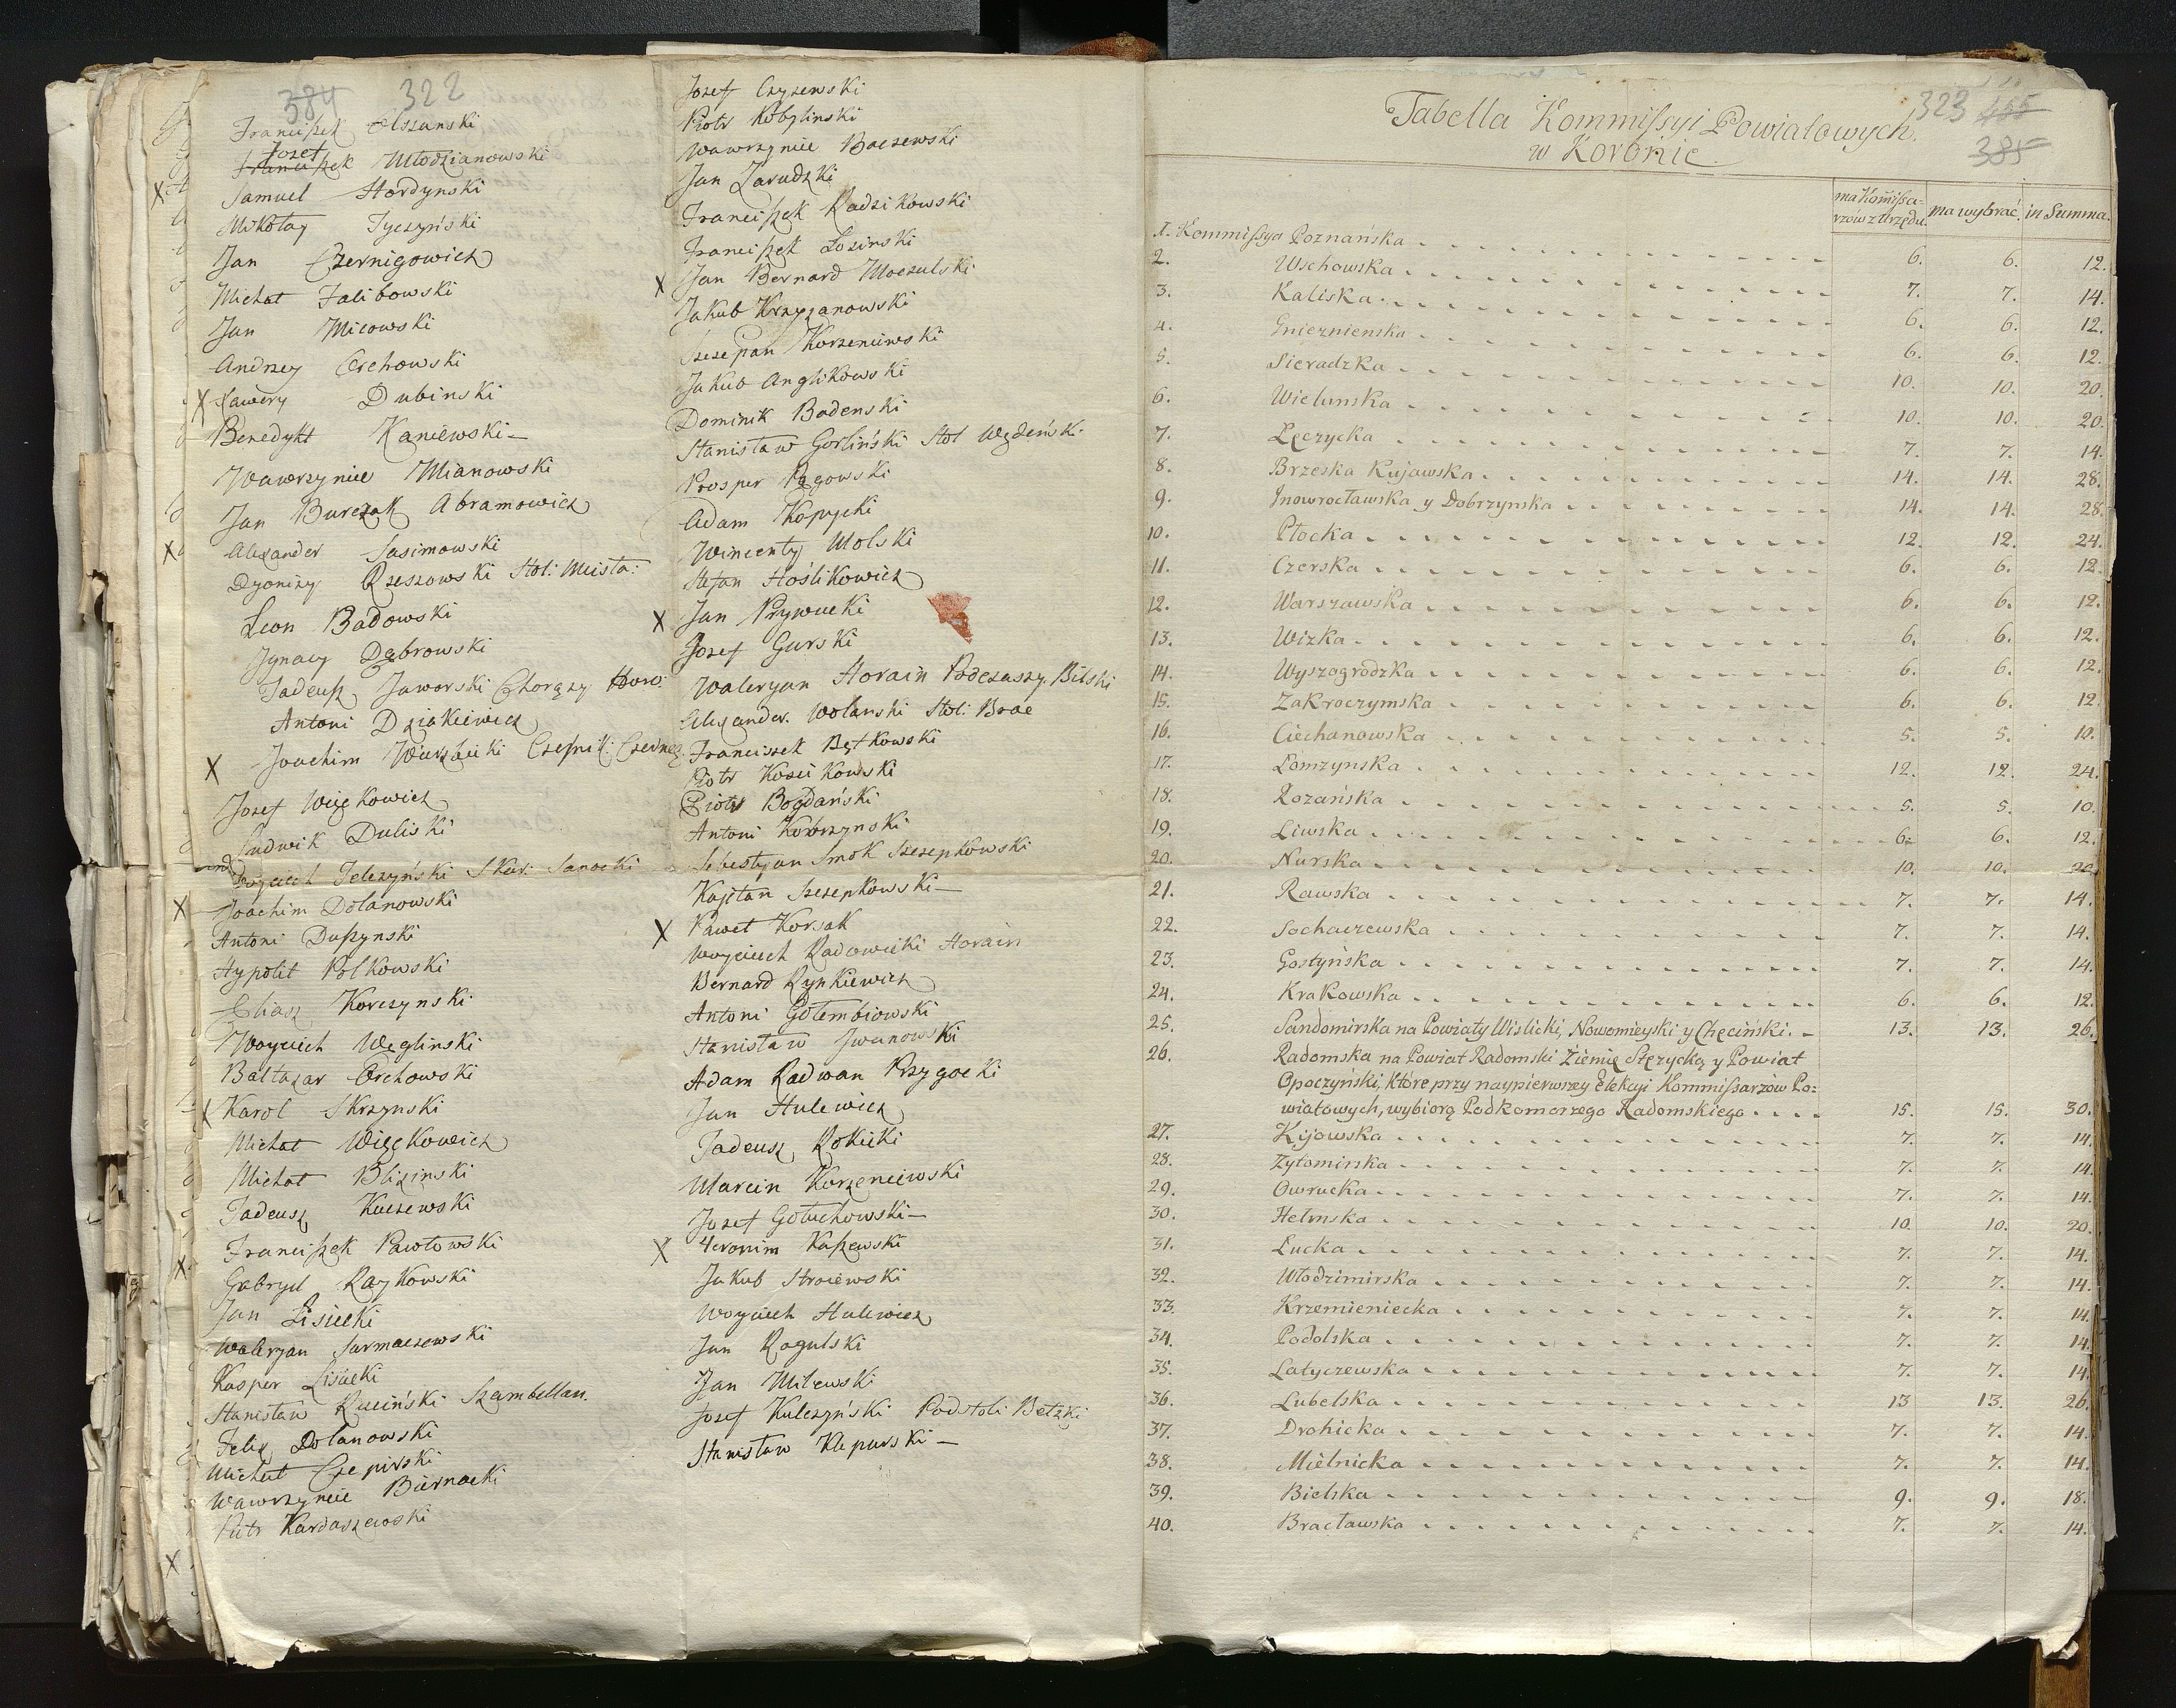 384 322
Franciszek Olszanski
Jozef
Franciszek Młodzianowski
Samuel Hordynski
Mikołay Tyczyński
Jan Czernigowicz
Michał Falibowski
Jan Micowski
Andrzey Orchowski
X Xawery Dubinski
Benedykt Kaniewski
Wawrzyniec Mianowski
Jan Burczak Abramowicz
X Alexander Sasimowski
Dyonizy Rzeszowski Stol: Meista:
Leon Badowski
Jgnacy Dąbrowski
Tadeusz Jaworski Chorąży
Antoni Dziakiewicz
X Joachim Wierzbicki Czesnik:
Jozef Więckowicz
Ludwik Duliski
Woyciech Teleżyński Skar: Sanocki
X Joachim Dolanowski
Antoni Duszynski
Hypolit Polkowski
Eliasz Korczynski
Woyciech Węglinski
Baltazar Orchowski
X Karol Skrzynski
Michał Więckowicz
Michał Blizinski
Tadeusz Kuczewski
Franciszek Pawłowski
X Gabryel Raykowski
Jan Lisiecki
Waleryan Jarmaczewski
Kasper Lisiecki
Stanisław Ruciński Szambellan.
Felix Dolanowski
Michał Czepirski
Wawrzyniec Biernacki
Piotr Kardaszewski
X
Jozef Czyzewski
Piotr Kobylinski
Wawrzyniec Baczewski
Jan Zarudzki
Franciszek Radzikowski
Franciszek Łosinski
X Jan Bernard Moczulski
Jakub Krzyżanowski
Szczepan Korzeniewski
Jakub Anglikowski
Dominik Badenski
Stanisław Gorliński Stol Wędeński
Prosper Pągowski
Adam Kopycki
Wincenty Wolski
Stefan Hoślikowicz
X Jan Przywecki
Jozef Gurski
Waleryan Horain Podczaszy. Bilski
Alexander. Wolanski Stol: Brac
Franciszek Bętkowski
Piotr Kosickowski
Piotr Bogdański
Antoni Kobrzynski
Sebestyan Smok Szczepkowski
Kajetan Szczepkowski
X Paweł Korsak
Woyciech Radowicki Horain
Bernard Rynkiewicz
Antoni Gołembiowski
Stanisław Jwanowski
Adam Radwan Przygocki
Jan Hulewicz
Tadeusz Rokicki
Marcin Korzeniewski
Jozef Gołuchowski
X Hieronim Kaszewski
Jakub Stroiewski
Woyciech Hulewicz
Jan Rogulski
Jan Milewski
Jozef Kulczyński Podstoli Bełzki
Stanisław Klepurski
323 455
385
Tabella Kommissyi Powiatowych
w Koronie.
ma Kom̃issa-
rzów z Urzędu. ma wybrać. in Summa.
1. Kommissya Poznańska 6. 6. 12.
2. Wschowska 7. 7. 14.
3. Kaliska 6. 6. 12.
4. Gnieznienska 6. 6. 12.
5. Sieradzka 10. 10. 20.
6. Wielunska 10. 10. 20.
7. Łęczycka 7. 7. 14.
8. Brzeska Kujawska 14. 14. 28.
9. Jnowrocławska y Dobrzynska 14. 14. 28.
10. Płocka 12. 12. 24.
11. Czerska 6. 6. 12.
12. Warszawska 6. 6. 12.
13. Wizka 6. 6. 12.
14. Wyszogrodzka 6. 6. 12.
15. Zakroczymska 6. 6. 12.
16. Ciechanowska 5. 5. 10.
17. Łomzynska 12. 12. 24.
18. Rozańska 5. 5. 10.
19. Liwska 6. 6. 12.
20. Nurska 10. 10. 20.
21. Rawska 7. 7. 14.
22. Sochaczewska 7. 7. 14.
23. Gostyńska 7. 7. 14.
24. Krakowska 6. 6. 12.
25. Sandomirska na Powiaty Wislicki, Nowomieyski y Chęciński. 13. 13. 26.
26. Radomska na Powiat Radomski Ziemię Stęzycką y Powiat
Opoczyński, które przy naypierwszey Elekcyi Kommissarzów Po-
wiatowych, wybiorą Podkomorzego Radomskiego 15. 15. 30.
27. Kijowska 7. 7. 14.
28. Zytomirska 7. 7. 14.
29. Owrucka 7. 7. 14.
30. Hełmska 10. 10. 20.
31. Łucka 7. 7. 14.
32. Włodzimirska 7. 7. 14.
33. Krzemieniecka 7. 7. 14.
34. Podolska 7. 7. 14.
35. Latyczewska 7. 7. 14.
36. Lubelska 13 13. 26.
37. Drohicka 7. 7. 14.
38. Mielnicka 7. 7. 14.
39. Bielska 9. 9. 18.
40. Bracławska 7. 7. 14.